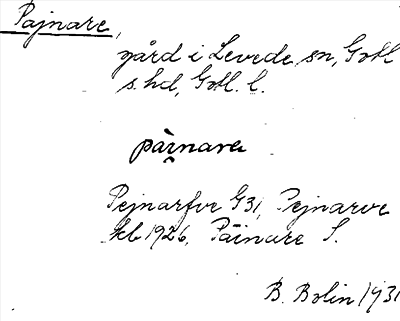 Pajnare,
gård i Levede sn, Gotl
s. hd, Gotl. l.
pai̯nara
Pejnarfve G31, Pejnarve
kb 1926, Päinare S.
B. Bolin 1931